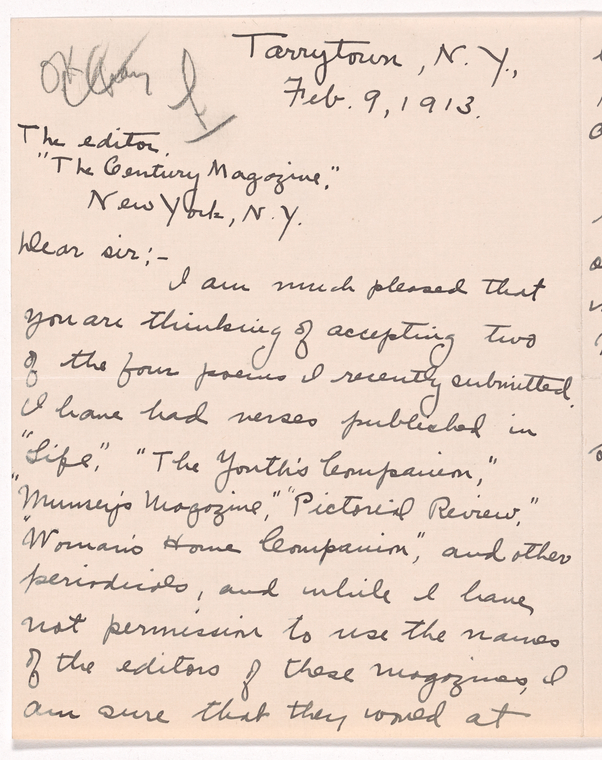 Tarrytown, N. Y.,
Feb. 9, 1913.
The editor,
"The Century Magazine,"
New York, N. Y.
Dear sir:-
I am much pleased that
you are thinking of accepting two
of the four poems I recently submitted.
I have had verses published in
"Life," "The Youth's Companion,"
"Munsey's Magazine," "Pictorial Review,"
"Woman's Home Companion", and other
periodicals, and while I have
not permission to use the names
of the editors of these magazines, I
am sure that they would at